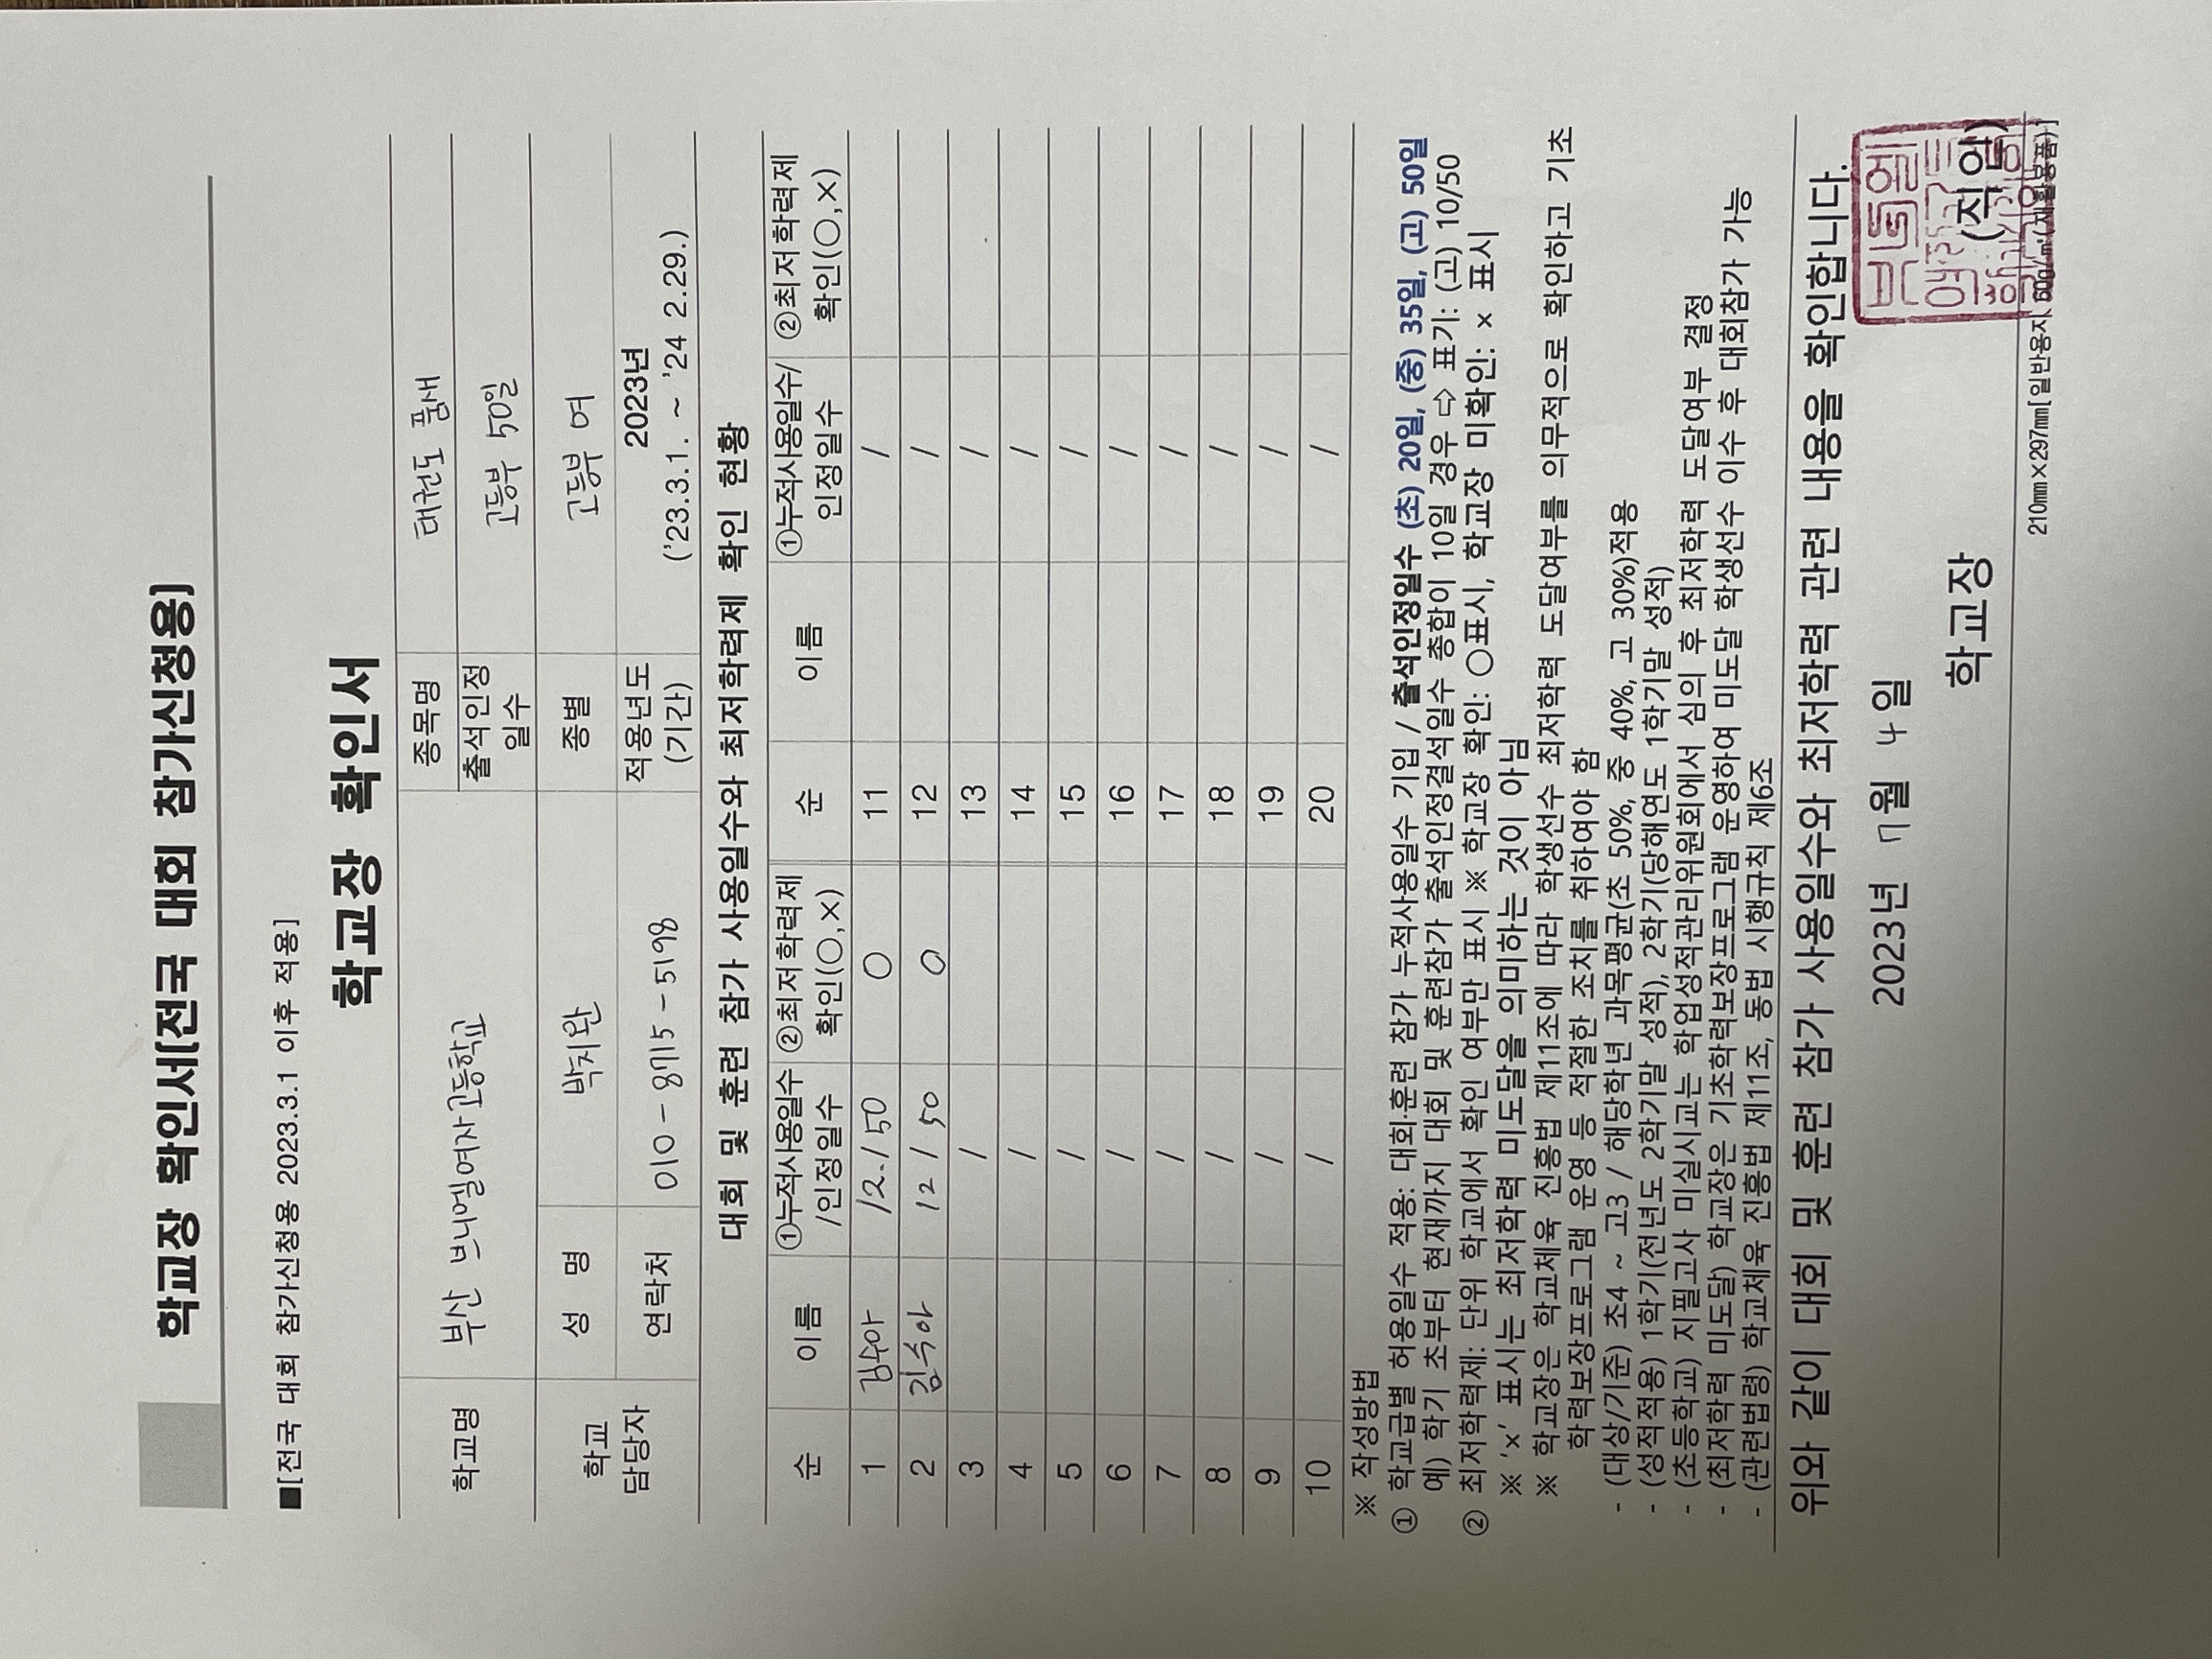 학교장 확인서[전국 대회 참가신청용]
■[전국 대회 참가신청용 2023.3.1 이후 적용]
학교장 확인서
학교명 부산 브니엘여자고등학교 종목명 태권도 품새
출석인정일수 고등부 50일
학교 담당자 성 명 박치완 종별 고등부 여
연락처 010-8715-5198 적용년도 (기간) 2023년 ('23.3.1. ~ '24 2.29.)
대회 및 훈련 참가 사용일수와 최저학력제 확인 현황
순 이름 ①누적사용일수/인정일수 ②최저학력제 확인(○,×) 순 이름 ①누적사용일수/인정일수 ②최저학력제 확인(○,×)
1 김수아 12/50 ○ 11 /
2 김수아 12/50 ○ 12 /
3 / 13 /
4 / 14 /
5 / 15 /
6 / 16 /
7 / 17 /
8 / 18 /
9 / 19 /
10 / 20 /
※ 작성방법
① 학교급별 허용일수 적용: 대회·훈련 참가 누적사용일수 기입 / 출석인정일수 (초) 20일, (중) 35일, (고) 50일
예) 학기 초부터 현재까지 대회 및 훈련참가 출석인정결석일수 총합이 10일 경우 ⇨ 표기: (고) 10/50
② 최저학력제: 단위 학교에서 확인 여부만 표시 ※ 학교장 확인: ○표시, 학교장 미확인: × 표시
※ '×' 표시는 최저학력 미도달을 의미하는 것이 아님
※ 학교장은 학교체육 진흥법 제11조에 따라 학생선수 최저학력 도달여부를 의무적으로 확인하고 기초
학력보장프로그램 운영 등 적절한 조치를 취하여야 함
- (대상/기준) 초4 ~ 고3 / 해당학년 과목평균(초 50%, 중 40%, 고 30%)적용
- (성적적용) 1학기(전년도 2학기말 성적), 2학기(당해연도 1학기말 성적)
- (초등학교) 지필고사 미실시교는 학업성적관리위원회에서 심의 후 최저학력 도달여부 결정
- (최저학력 미도달) 학교장은 기초학력보장프로그램 운영하여 미도달 학생선수 이수 후 대회참가 가능
- (관련법령) 학교체육 진흥법 제11조, 동법 시행규칙 제6조
위와 같이 대회 및 훈련 참가 사용일수와 최저학력 관련 내용을 확인합니다.
2023년 7월 4일
학교장 (직인)
210㎜×297㎜[일반용지 60g/㎡(재활용품)]